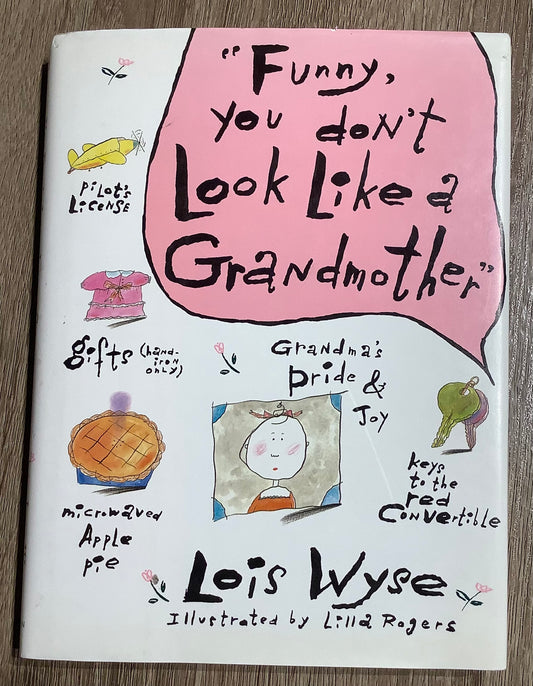 "Funny,
you don't
Look Like a
Grandmother"
Pilot's
License
gifts (hand-
iron
only)
Grandma's
pride &
Joy
keys
to the
red
Convertible
microwaved
Apple
pie
Lois Wyse
Illustrated by Lilla Rogers